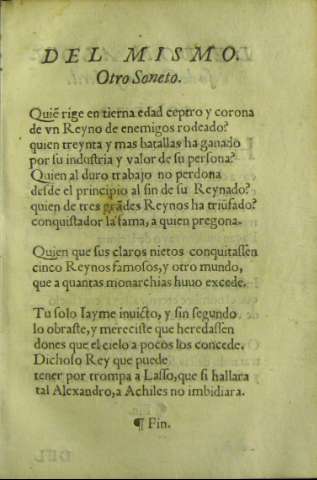 DEL MISMO.
Otro Soneto.
Quiẽ rige en tierna edad ceptro y corona
de vn Reyno de enemigos rodeado?
quien treynta y mas batallas ha ganado
por su industria y valor de su persona?
Quien al duro trabajo no perdona
desde el principio al fin de su Reynado?
quien de tres grãdes Reynos ha triũfado?
conquistador la fama, a quien pregona.
Quien que sus claros nietos conquistassen
cinco Reynos famosos, y otro mundo,
que a quantas monarchias huuo excede.
Tu solo Iayme inuicto, y sin segundo
lo obraste, y mereciste que heredassen
dones que el cielo a pocos los concede.
Dichoso Rey que puede
tener por trompa a Lasso, que si hallara
tal Alexandro, a Achiles no imbidiara.
¶ Fin.